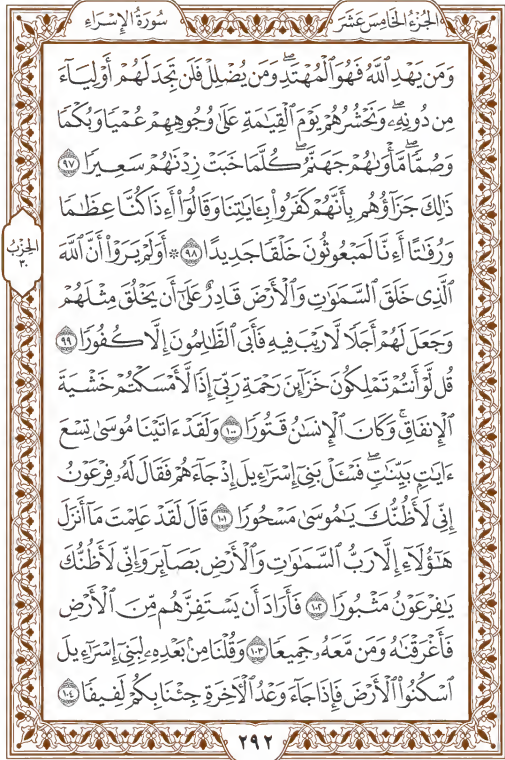 الجُزْءُ الخَامِسَ عَشَرَ
سُورَةُ الإِسْرَاءِ
وَمَن يَهْدِ ٱللَّهُ فَهُوَ ٱلْمُهْتَدِۖ وَمَن يُضْلِلْ فَلَن تَجِدَ لَهُمْ أَوْلِيَآءَ
مِن دُونِهِۦۖ وَنَحْشُرُهُمْ يَوْمَ ٱلْقِيَٰمَةِ عَلَىٰ وُجُوهِهِمْ عُمْيًا وَبُكْمًا
وَصُمًّاۖ مَّأْوَىٰهُمْ جَهَنَّمُۖ كُلَّمَا خَبَتْ زِدْنَٰهُمْ سَعِيرًا ٩٧
ذَٰلِكَ جَزَآؤُهُم بِأَنَّهُمْ كَفَرُوا۟ بِـَٔايَٰتِنَا وَقَالُوٓا۟ أَءِذَا كُنَّا عِظَٰمًا
وَرُفَٰتًا أَءِنَّا لَمَبْعُوثُونَ خَلْقًا جَدِيدًا ٩٨ ۞ أَوَلَمْ يَرَوْا۟ أَنَّ ٱللَّهَ
الحِزْبُ
٣٠
ٱلَّذِى خَلَقَ ٱلسَّمَٰوَٰتِ وَٱلْأَرْضَ قَادِرٌ عَلَىٰٓ أَن يَخْلُقَ مِثْلَهُمْ
وَجَعَلَ لَهُمْ أَجَلًا لَّا رَيْبَ فِيهِ فَأَبَى ٱلظَّٰلِمُونَ إِلَّا كُفُورًا ٩٩
قُل لَّوْ أَنتُمْ تَمْلِكُونَ خَزَآئِنَ رَحْمَةِ رَبِّىٓ إِذًا لَّأَمْسَكْتُمْ خَشْيَةَ
ٱلْإِنفَاقِۚ وَكَانَ ٱلْإِنسَٰنُ قَتُورًا ١٠٠ وَلَقَدْ ءَاتَيْنَا مُوسَىٰ تِسْعَ
ءَايَٰتٍۭ بَيِّنَٰتٍۖ فَسْـَٔلْ بَنِىٓ إِسْرَٰٓءِيلَ إِذْ جَآءَهُمْ فَقَالَ لَهُۥ فِرْعَوْنُ
إِنِّى لَأَظُنُّكَ يَٰمُوسَىٰ مَسْحُورًا ١٠١ قَالَ لَقَدْ عَلِمْتَ مَآ أَنزَلَ
هَٰٓؤُلَآءِ إِلَّا رَبُّ ٱلسَّمَٰوَٰتِ وَٱلْأَرْضِ بَصَآئِرَ وَإِنِّى لَأَظُنُّكَ
يَٰفِرْعَوْنُ مَثْبُورًا ١٠٢ فَأَرَادَ أَن يَسْتَفِزَّهُم مِّنَ ٱلْأَرْضِ
فَأَغْرَقْنَٰهُ وَمَن مَّعَهُۥ جَمِيعًا ١٠٣ وَقُلْنَا مِنۢ بَعْدِهِۦ لِبَنِىٓ إِسْرَٰٓءِيلَ
ٱسْكُنُوا۟ ٱلْأَرْضَ فَإِذَا جَآءَ وَعْدُ ٱلْـَٔاخِرَةِ جِئْنَا بِكُمْ لَفِيفًا ١٠٤
٢٩٢